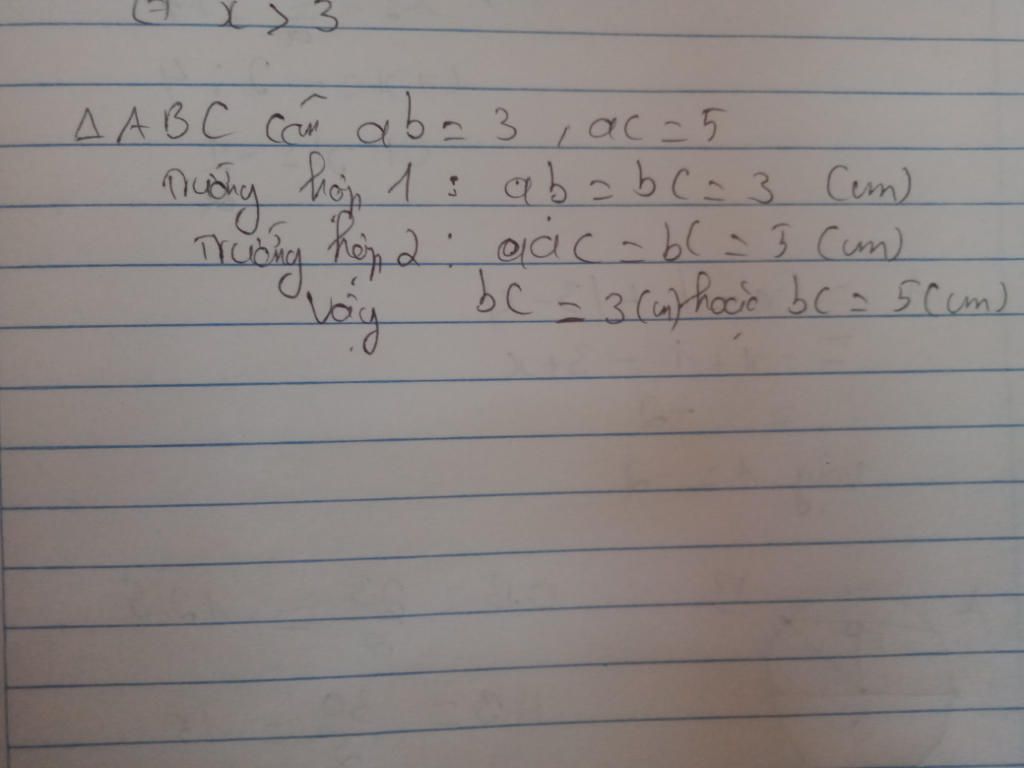 ⇔ x > 3
Δ ABC cân ab = 3 , ac = 5
Trường hợp 1 : ab = bc = 3 (cm)
Trường hợp 2 : ac = bc = 5 (cm)
Vậy bc = 3 (cm) hoặc bc = 5 (cm)